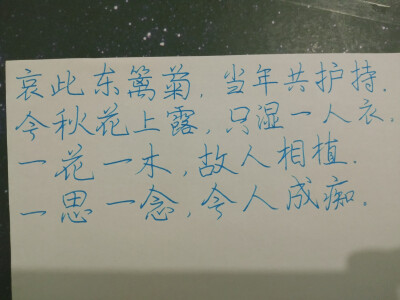 哀此东篱菊，当年共护持.
今秋花上露，只湿一人衣.
一花一木，故人相植.
一思一念，令人成痴.